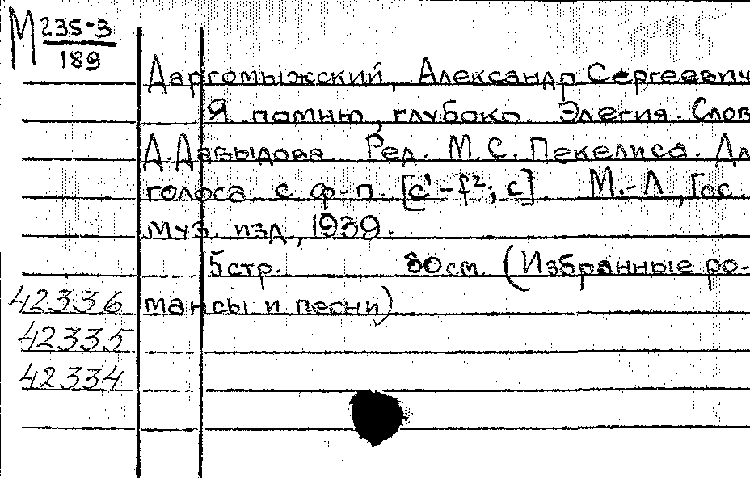 М 235-3
189
Даргомыжский, Александр Сергеевич
Я помню, глубоко. Элегия. Слов
Д. Давыдова. Ред. М.С. Пекелиса. Дл
голоса с ф-п. [c¹-f², c] М.-Л., Гос.
муз. изд., 1939.
5 стр. 30 см. (Избранные ро-
42336 мансы и песни)
42335
42334